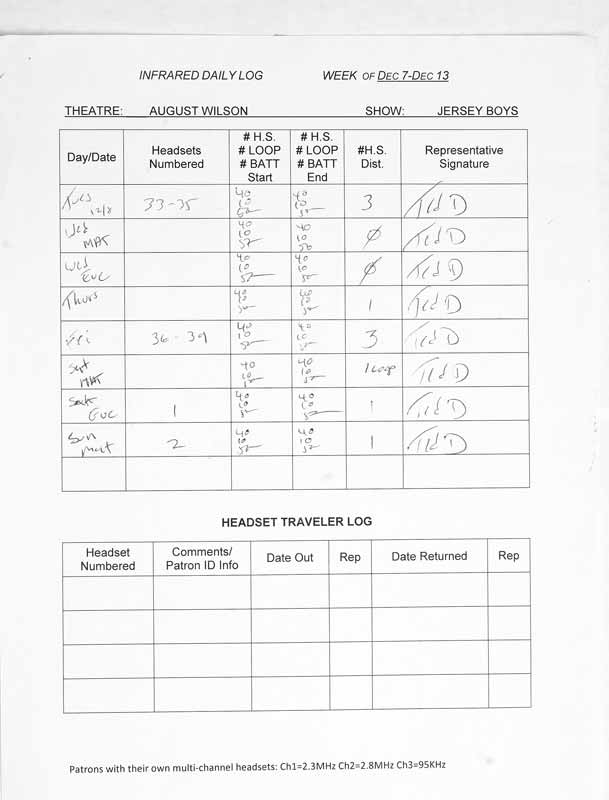 INFRARED DAILY LOG WEEK OF DEC 7-DEC 13
THEATRE: AUGUST WILSON SHOW: JERSEY BOYS
Day/Date Headsets Numbered # H.S. # LOOP # BATT Start # H.S. # LOOP # BATT End #H.S. Dist. Representative Signature
Tues 12/8 33-35 40 10 52 40 10 52 3 Ted D
Wed MAT 40 10 52 40 10 50 0 Ted D
Wed EVE 40 10 52 40 10 52 0 Ted D
Thurs 40 10 52 40 10 52 1 Ted D
Fri 36-39 40 10 52 40 10 52 3 Ted D
Sat MAT 40 10 52 40 10 52 1 Loop Ted D
Sat EVE 1 40 10 52 40 10 52 1 Ted D
Sun mat 2 40 10 52 40 10 52 1 Ted D
HEADSET TRAVELER LOG
Headset Numbered Comments/ Patron ID Info Date Out Rep Date Returned Rep
Patrons with their own multi-channel headsets: Ch1=2.3MHz Ch2=2.8MHz Ch3=95KHz